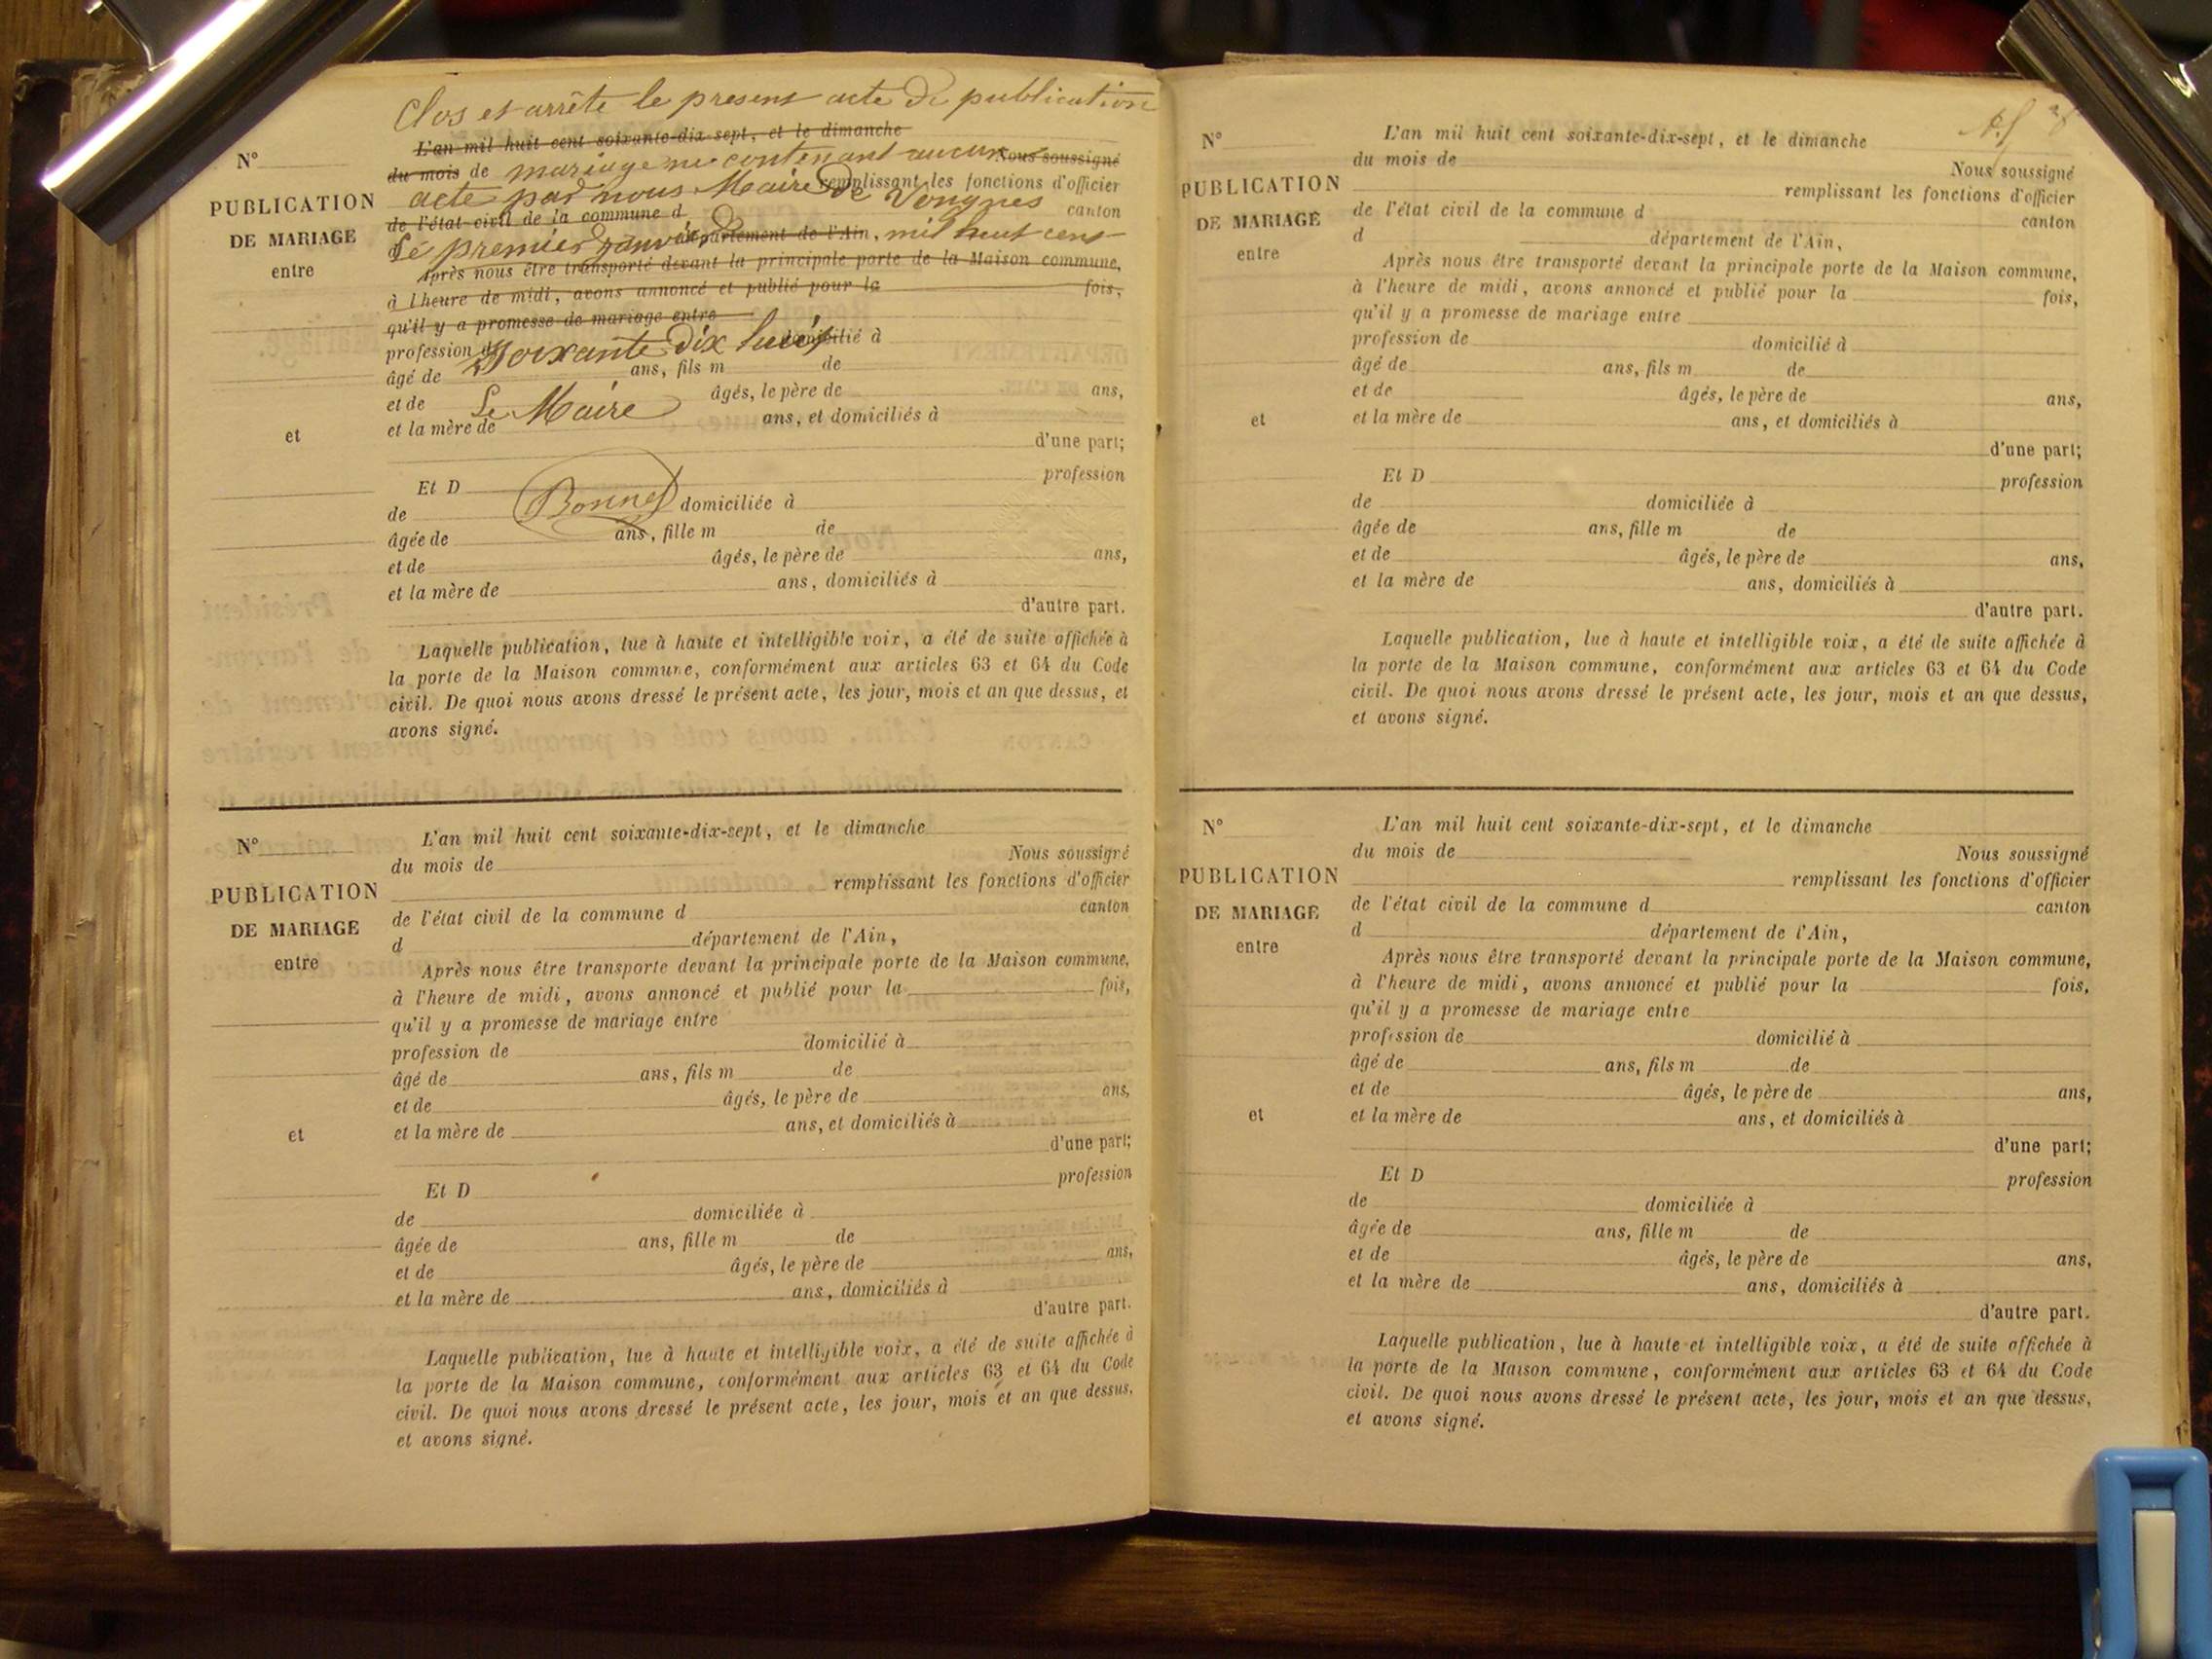 Clos et arrête le present acte de publication
L'an mil huit cent soixante-dix-sept, et le dimanche
du mois de mariage ne contenant aucun Nous soussigné
acte par nous Maire de Vongnes remplissant les fonctions d'officier
de l'état civil de la commune d canton
Le premier janvier département de l'Ain, mil huit cent
Après nous être transporté devant la principale porte de la Maison commune,
à l'heure de midi, avons annoncé et publié pour la fois,
qu'il y a promesse de mariage entre
profession de Soixante dix huit domicilié à
âgé de ans, fils m de
et de Le Maire âgés, le père de ans,
et la mère de ans, et domiciliés à
d'une part;
Et D profession
de Bonnet domiciliée à
âgée de ans, fille m de
et de âgés, le père de ans,
et la mère de ans, domiciliés à
d'autre part.
Laquelle publication, lue à haute et intelligible voix, a été de suite affichée à
la porte de la Maison commune, conformément aux articles 63 et 64 du Code
civil. De quoi nous avons dressé le présent acte, les jour, mois et an que dessus, et
avons signé.
N°
PUBLICATION
DE MARIAGE
entre
et
N°
PUBLICATION
DE MARIAGE
entre
et
L'an mil huit cent soixante-dix-sept, et le dimanche
du mois de Nous soussigné
remplissant les fonctions d'officier
de l'état civil de la commune d canton
d département de l'Ain,
Après nous être transporté devant la principale porte de la Maison commune,
à l'heure de midi, avons annoncé et publié pour la fois,
qu'il y a promesse de mariage entre
profession de domicilié à
âgé de ans, fils m de
et de âgés, le père de ans,
et la mère de ans, et domiciliés à
d'une part;
Et D profession
de domiciliée à
âgée de ans, fille m de
et de âgés, le père de ans,
et la mère de ans, domiciliés à
d'autre part.
Laquelle publication, lue à haute et intelligible voix, a été de suite affichée à
la porte de la Maison commune, conformément aux articles 63 et 64 du Code
civil. De quoi nous avons dressé le présent acte, les jour, mois et an que dessus,
et avons signé.
N°
PUBLICATION
DE MARIAGE
entre
et
L'an mil huit cent soixante-dix-sept, et le dimanche
du mois de Nous soussigné
remplissant les fonctions d'officier
de l'état civil de la commune d canton
d département de l'Ain,
Après nous être transporté devant la principale porte de la Maison commune,
à l'heure de midi, avons annoncé et publié pour la fois,
qu'il y a promesse de mariage entre
profession de domicilié à
âgé de ans, fils m de
et de âgés, le père de ans,
et la mère de ans, et domiciliés à
d'une part;
Et D profession
de domiciliée à
âgée de ans, fille m de
et de âgés, le père de ans,
et la mère de ans, domiciliés à
d'autre part.
Laquelle publication, lue à haute et intelligible voix, a été de suite affichée à
la porte de la Maison commune, conformément aux articles 63 et 64 du Code
civil. De quoi nous avons dressé le présent acte, les jour, mois et an que dessus,
et avons signé.
N°
PUBLICATION
DE MARIAGE
entre
et
L'an mil huit cent soixante-dix-sept, et le dimanche
du mois de Nous soussigné
remplissant les fonctions d'officier
de l'état civil de la commune d canton
d département de l'Ain,
Après nous être transporté devant la principale porte de la Maison commune,
à l'heure de midi, avons annoncé et publié pour la fois,
qu'il y a promesse de mariage entre
profession de domicilié à
âgé de ans, fils m de
et de âgés, le père de ans,
et la mère de ans, et domiciliés à
d'une part;
Et D profession
de domiciliée à
âgée de ans, fille m de
et de âgés, le père de ans,
et la mère de ans, domiciliés à
d'autre part.
Laquelle publication, lue à haute et intelligible voix, a été de suite affichée à
la porte de la Maison commune, conformément aux articles 63 et 64 du Code
civil. De quoi nous avons dressé le présent acte, les jour, mois et an que dessus,
et avons signé.